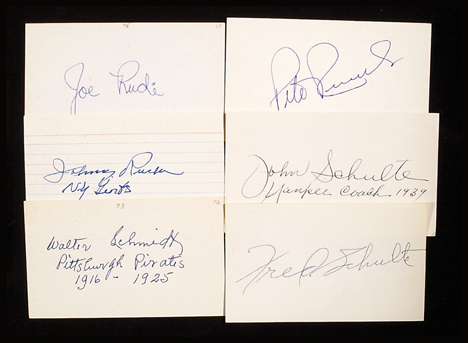 Joe Rudi
Pete Runnels
Johnny Rucker
NY Giants
John Schulte
Yankee Coach 1939
Walter Schmidt
Pittsburgh Pirates
1916 - 1925
Fred Schulte